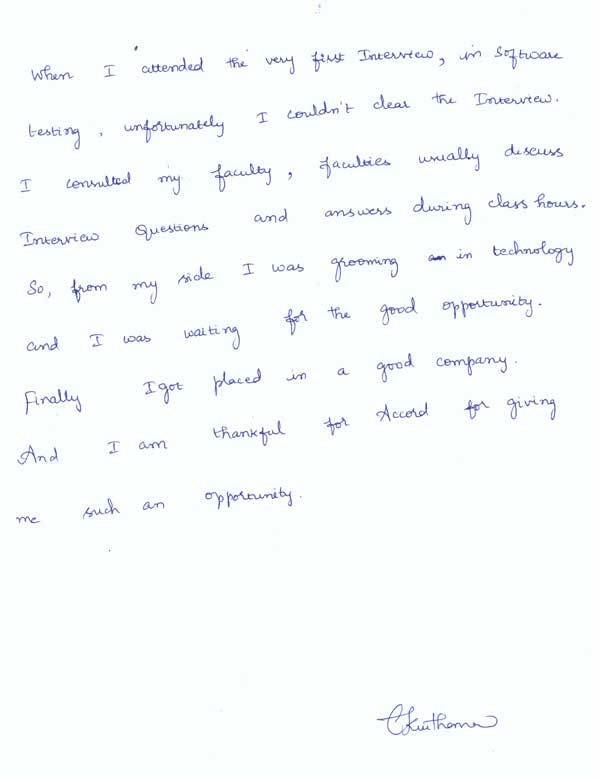 When I attended the very first Interview, in Software
testing, unfortunately I couldn't clear the Interview.
I consulted my faculty, faculties usually discuss
Interview Questions and answers during class hours.
So, from my side I was grooming in technology
and I was waiting for the good opportunity.
Finally I got placed in a good company.
And I am thankful for Accord for giving
me such an opportunity.